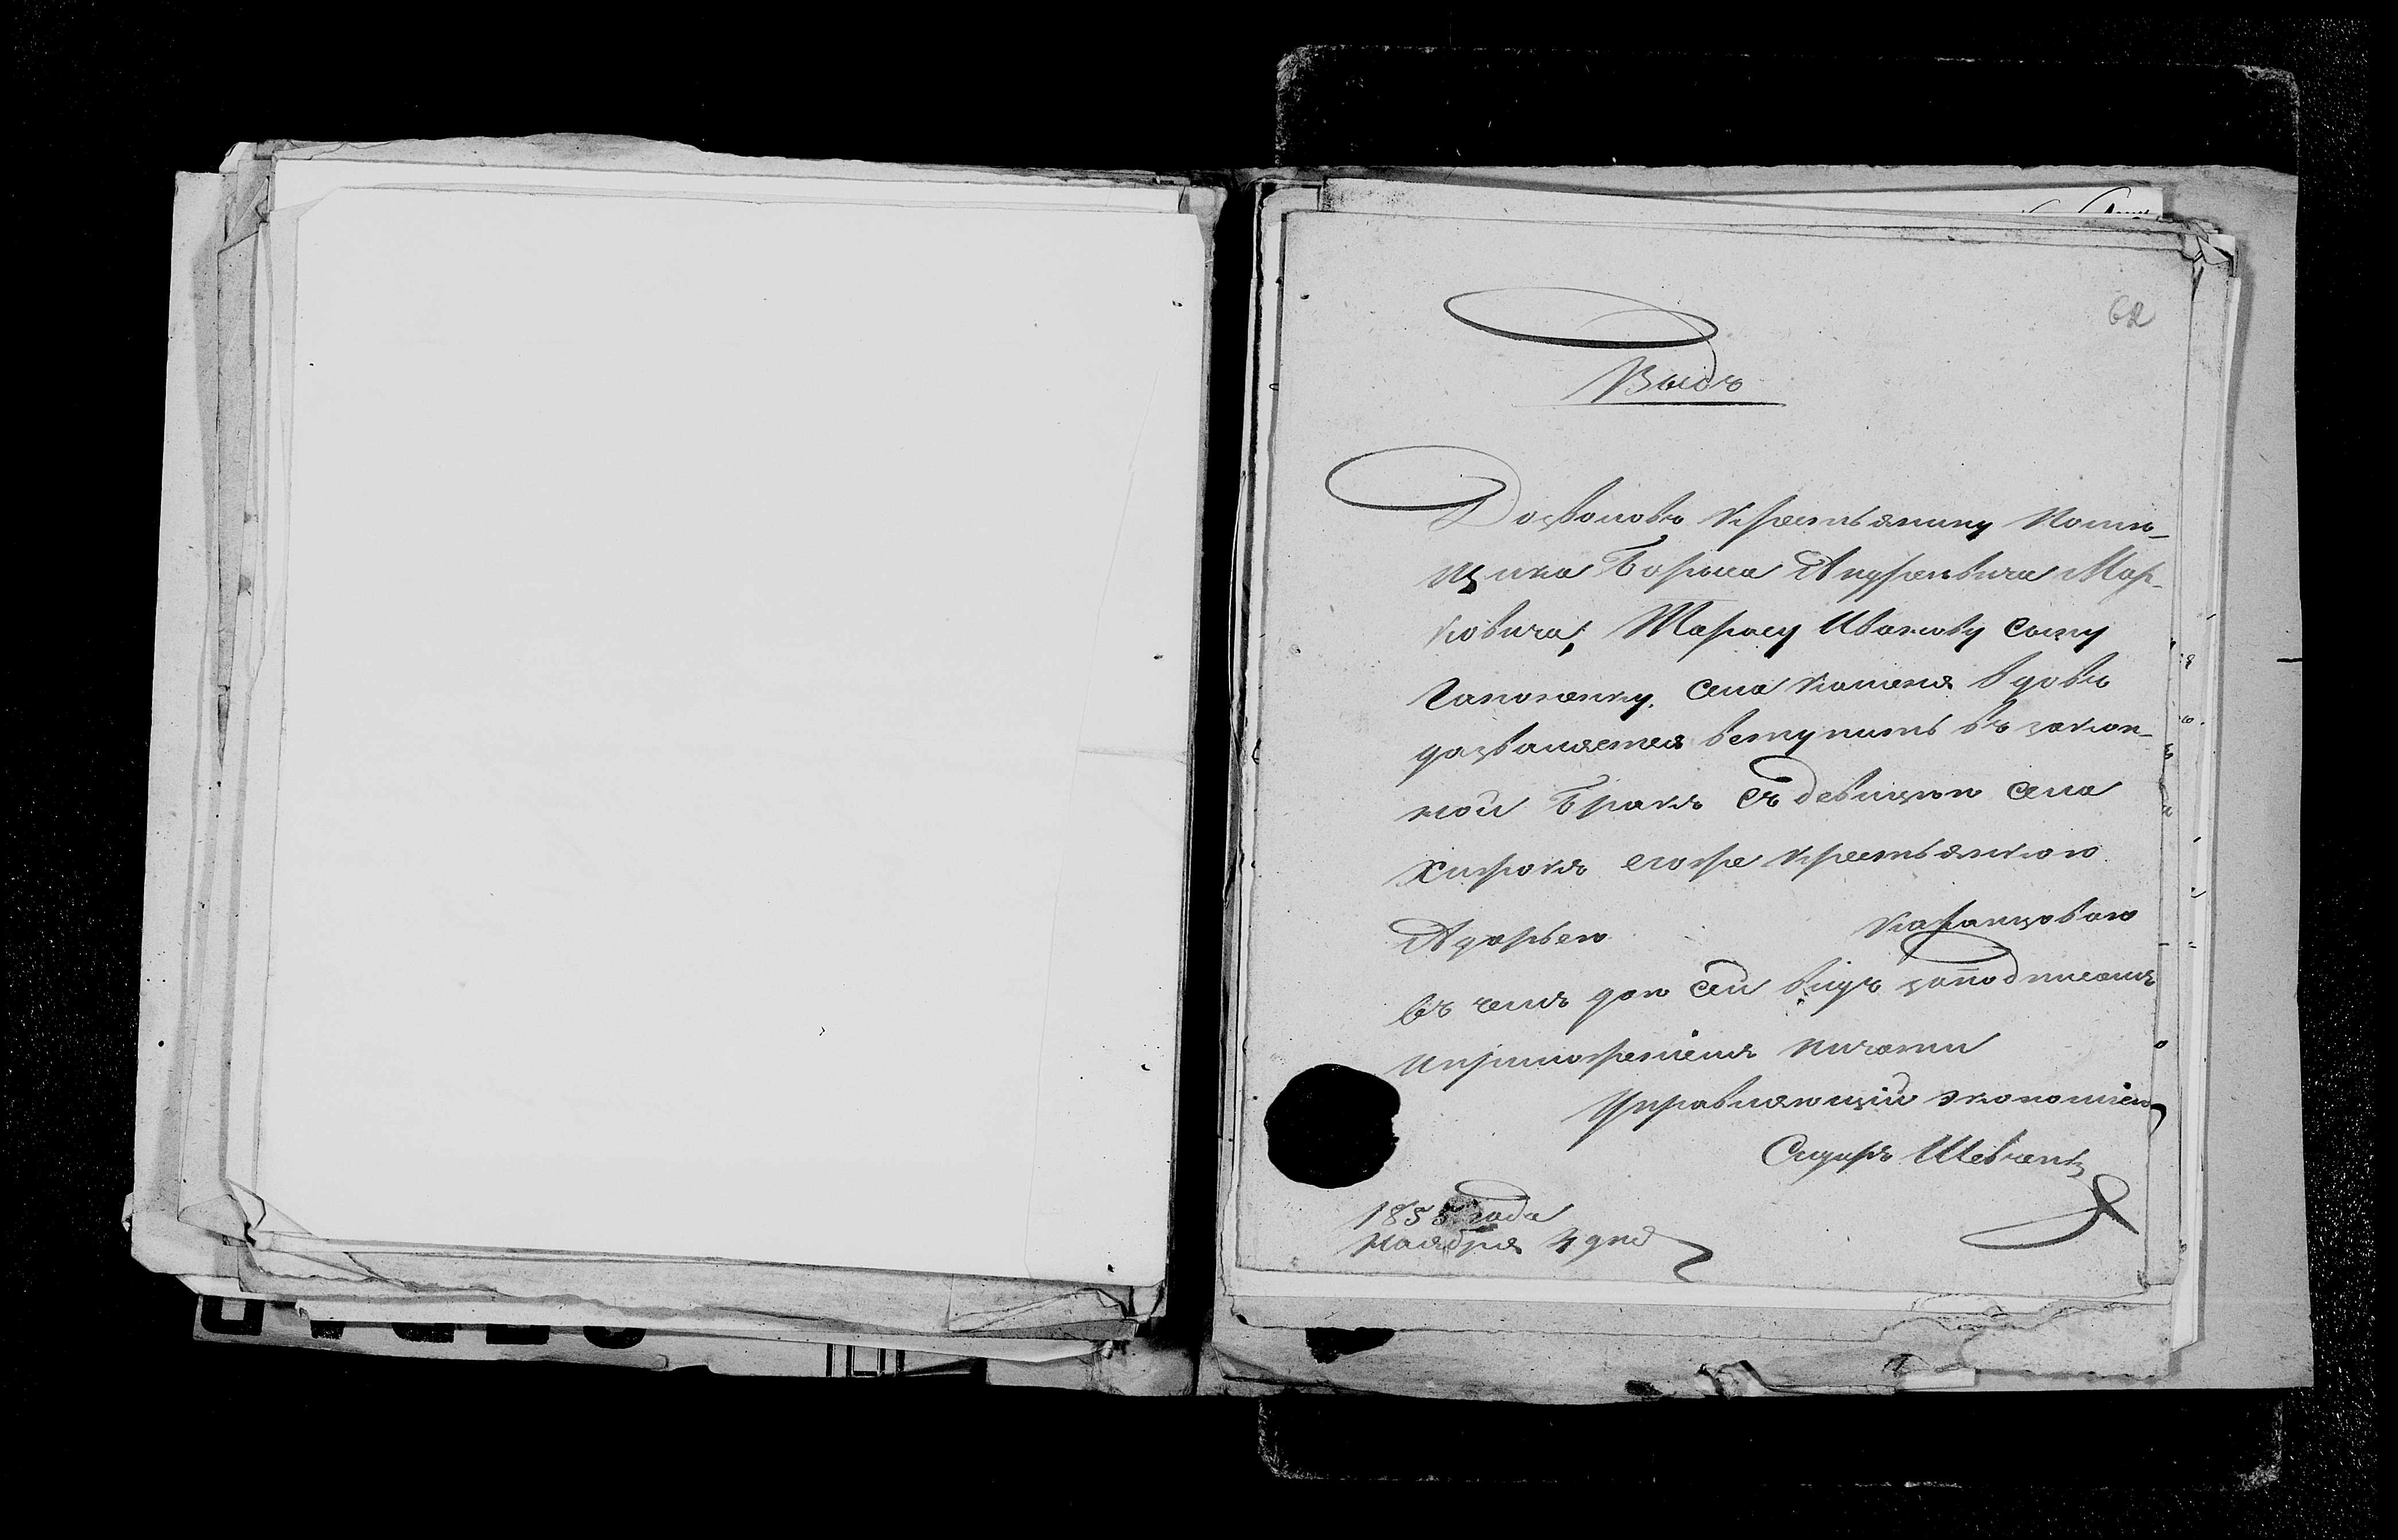 62
Выдъ
Дозволовъ крестьянину помѣ-
щика Бориса Андреевича Мар-
ковича, Тарасу Иванову сыну
села вдовѣ
дозваляется вступить въ закон-
ной бракъ съ девицею села
тогоже крестьянкою
Каранцовою
въ чемъ дон сей видъ заподписомъ
иприложеніемъ пичати
Управляющій экономіею
Сидоръ Шевченко
1855 года
Ноября 4 дня